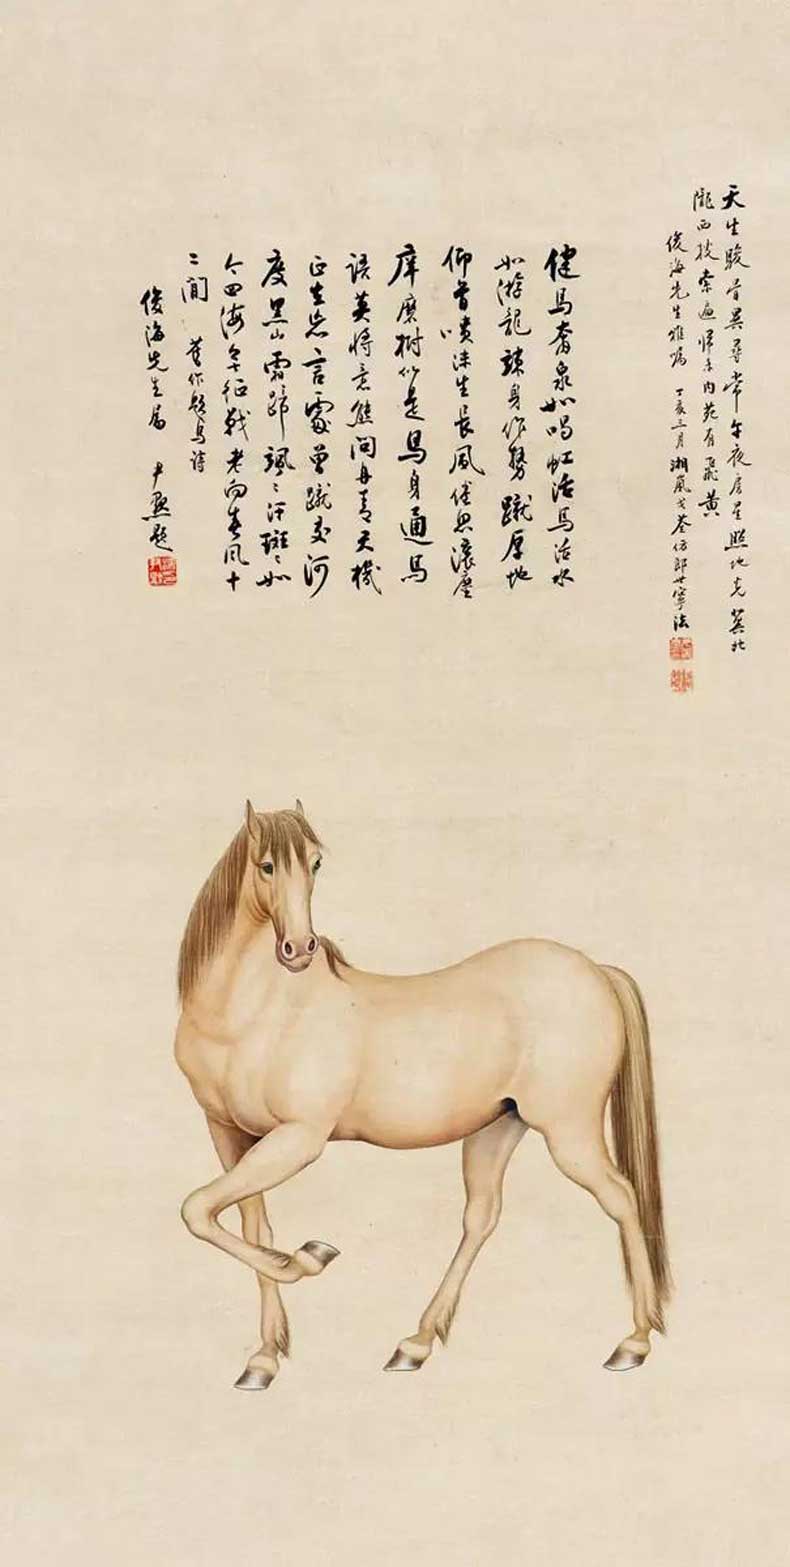 天生駿骨異尋常午夜房星照地光冀北
隴西搜索遍歸來內苑有飛黃
俊海先生雅嘱 丁亥三月湘嵐戈荃仿郎世寧法
健馬奔泉如喝虹活馬活水
如游龍竦身作勢蹴厚地
仰首噴沫生長風倦思滾塵
痒磨樹似是馬身通馬
語莫將意態問丹青天機
正在忘言處曾蹴交河
度黑山霜蹄颯〻汗斑〻如
今四海無征戰老向春風十
二閒 舊作題馬詩
俊海先生屬 尹默題